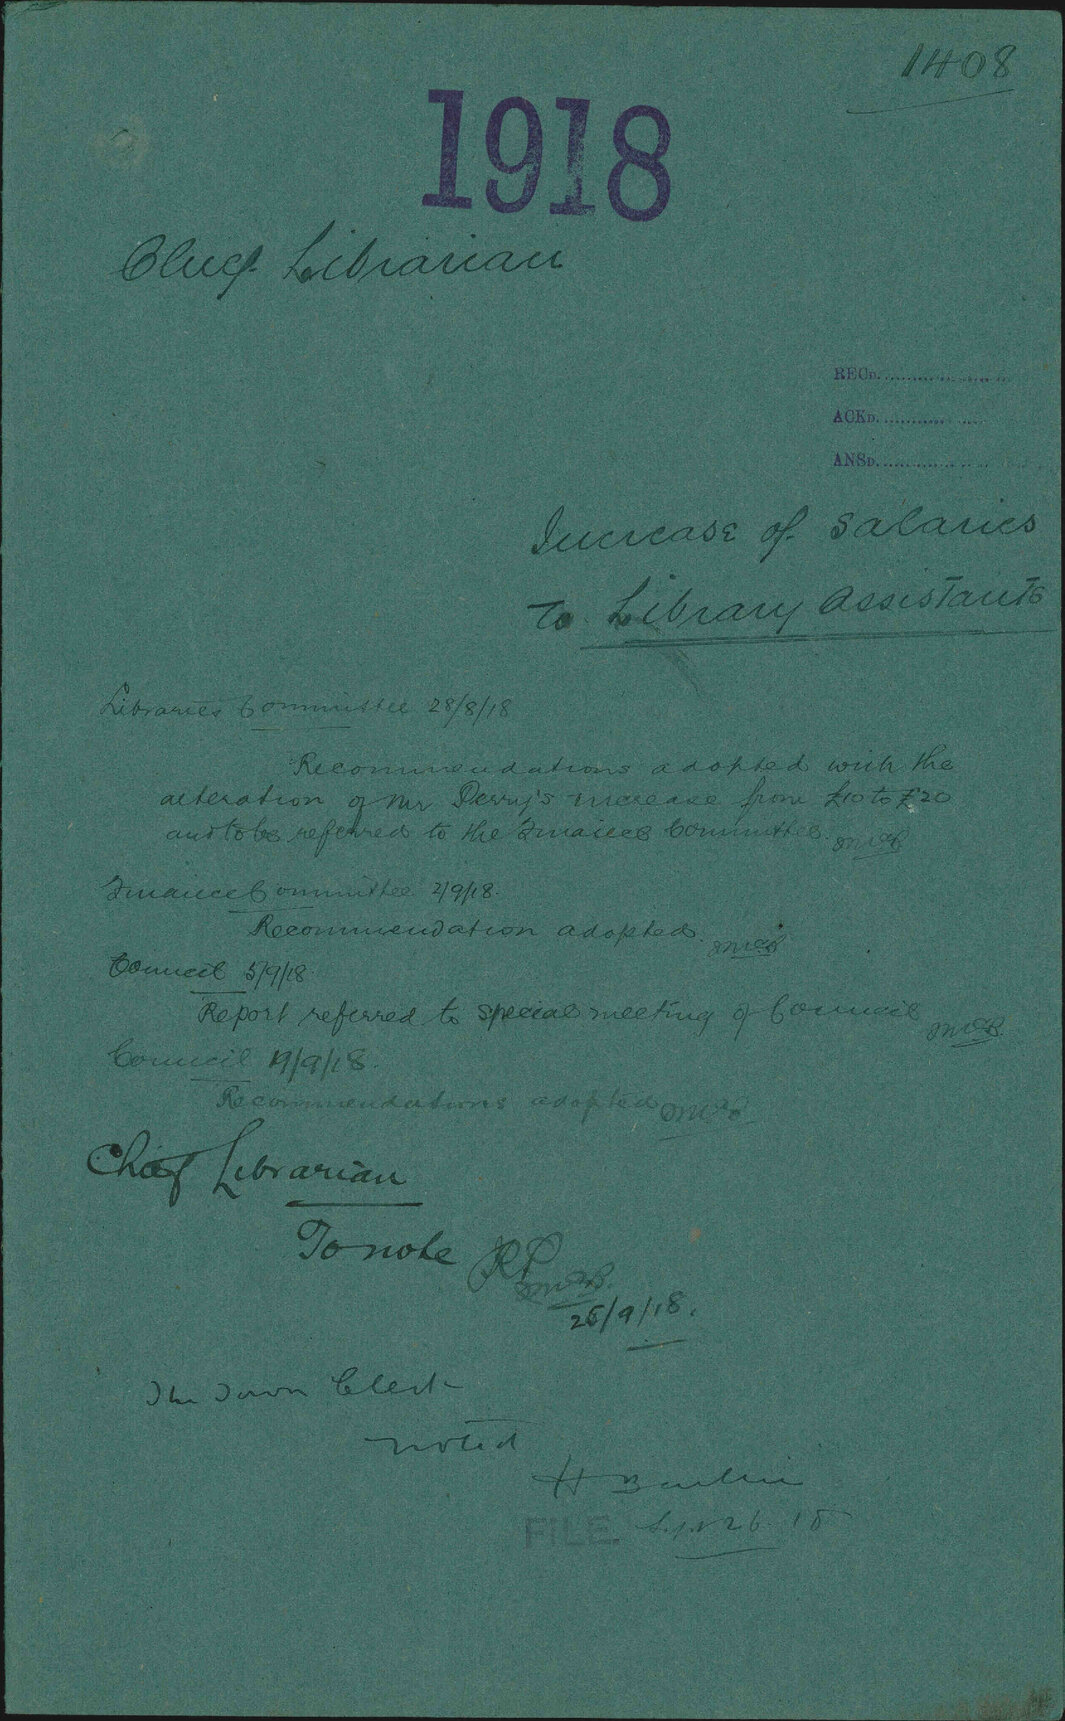 1408
1918
Chief Librarian
RECD.
ACKD.
ANSD.
Increase of Salaries
To Library Assistants
Libraries Committee 28/8/18
Recommendations adopted with the
alteration of Mr Perry's increase from £10 to £20
and to be referred to the Finance Committee.
Finance Committee 2/9/18.
Recommendation adopted.
Council 5/9/18
Report referred to special meeting of Council
Council 19/9/18.
Recommendations adopted
Chief Librarian
To note
25/9/18.
The Town Clerk
noted
H
FILE. Sept 26 18